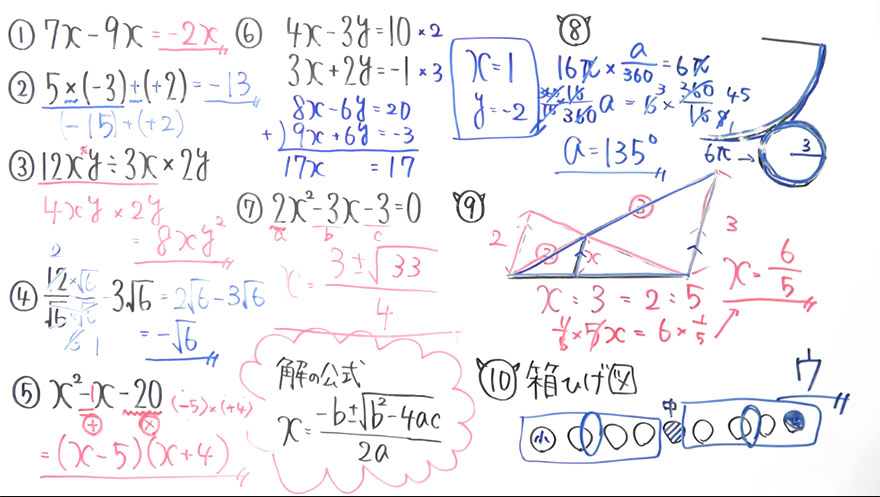 ① 7x - 9x = -2x
② 5×(-3)+(+2) = -13
(-15)+(+2)
③ 12x²y÷3x×2y
4xy×2y
= 8xy²
④ 12/√6 ×√6/√6 - 3√6 = 2√6 - 3√6
= -√6
⑤ x² - x - 20 (-5)×(+4)
= (x-5)(x+4)
⑥ 4x-3y=10 ×2
3x+2y=-1 ×3
8x-6y=20
+) 9x+6y=-3
17x = 17
x=1
y=-2
⑦ 2x²-3x-3=0
a b c
x = 3±√33 / 4
解の公式
x = -b±√b²-4ac / 2a
⑧
16π × a/360 = 6π
a = 135°
6π→
3
⑨
2
③
②
x
3
x : 3 = 2 : 5
1/5 × 5x = 6 × 1/5
x = 6/5
⑩ 箱ひげ図
ウ
中
小